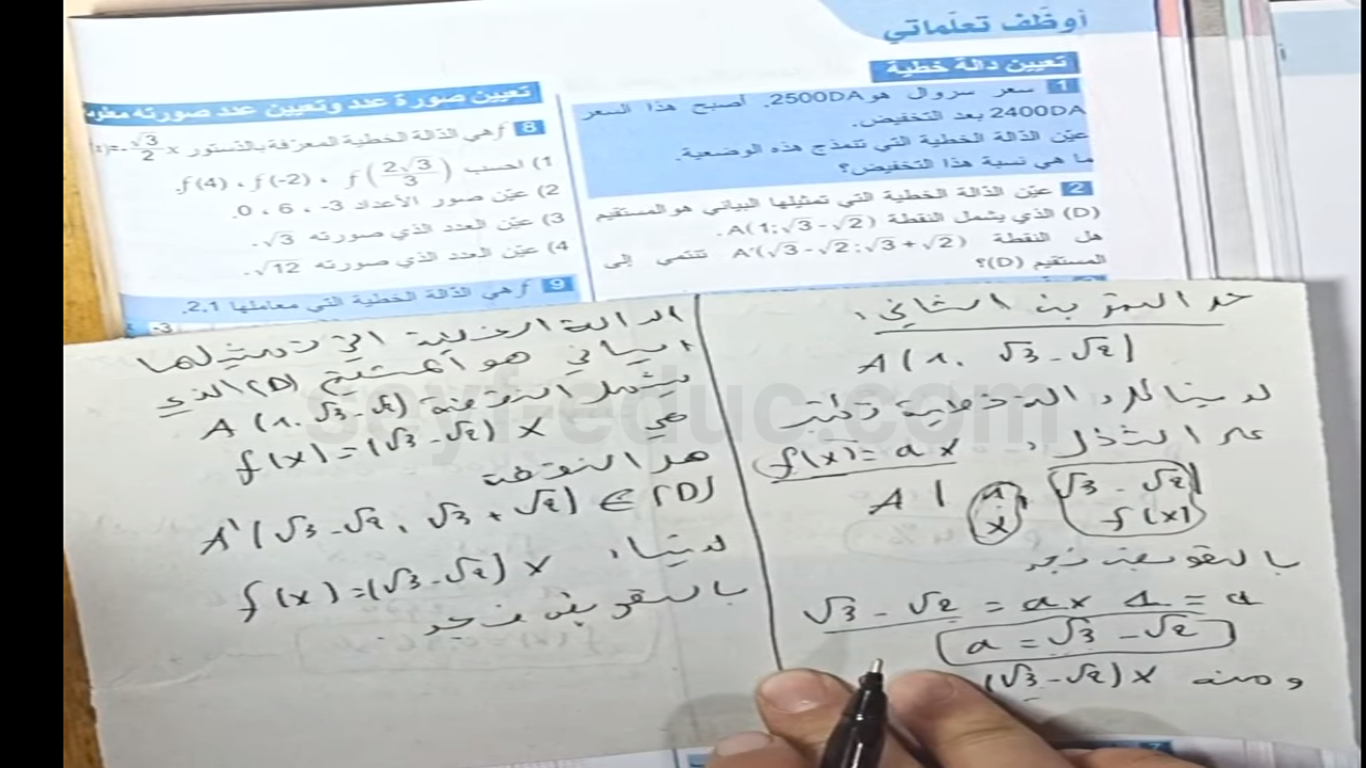 أوظّف تعلّماتي
تعيين دالة خطية
1 سعر سروال هو 2500DA. أصبح هذا السعر
2400DA بعد التخفيض.
عيّن الدالة الخطية التي تنمذج هذه الوضعية.
ما هي نسبة هذا التخفيض؟
2 عيّن الدّالة الخطية التي تمثيلها البياني هو المستقيم
(D) الذي يشمل النقطة A(1;√3-√2).
هل النقطة A'(√3-√2;√3+√2) تنتمي إلى
المستقيم (D)؟
تعيين صورة عدد وتعيين عدد صورته
8 f هي الدّالة الخطية المعرّفة بالدّستور √3/2 x
1) احسب f(2√3/3) ، f(-2) ، f(4).
2) عيّن صور الأعداد 3- ، 6 ، 0.
3) عيّن العدد الذي صورته √3.
4) عيّن العدد الذي صورته √12.
9 f هي الدّالة الخطية التي معاملها 2,1.
-3
حل التمرين الثاني:
A(1, √3-√2)
لدينا كل دالة خطية تكتب
على الشكل: f(x)=ax
A(1, √3-√2)
x f(x)
بالتعويض نجد
√3-√2 = a×1 = a
a = √3-√2
ومنه (√3-√2)x
الدالة الخطية التي تمثيلها
البياني هو المستقيم (D) الذي
يشمل النقطة A(1, √3-√2)
هي f(x)=(√3-√2)x
هل النقطة
A'(√3-√2, √3+√2) ∈ (D)
لدينا: f(x)=(√3-√2)x
بالتعويض نجد
seyf-educ.com